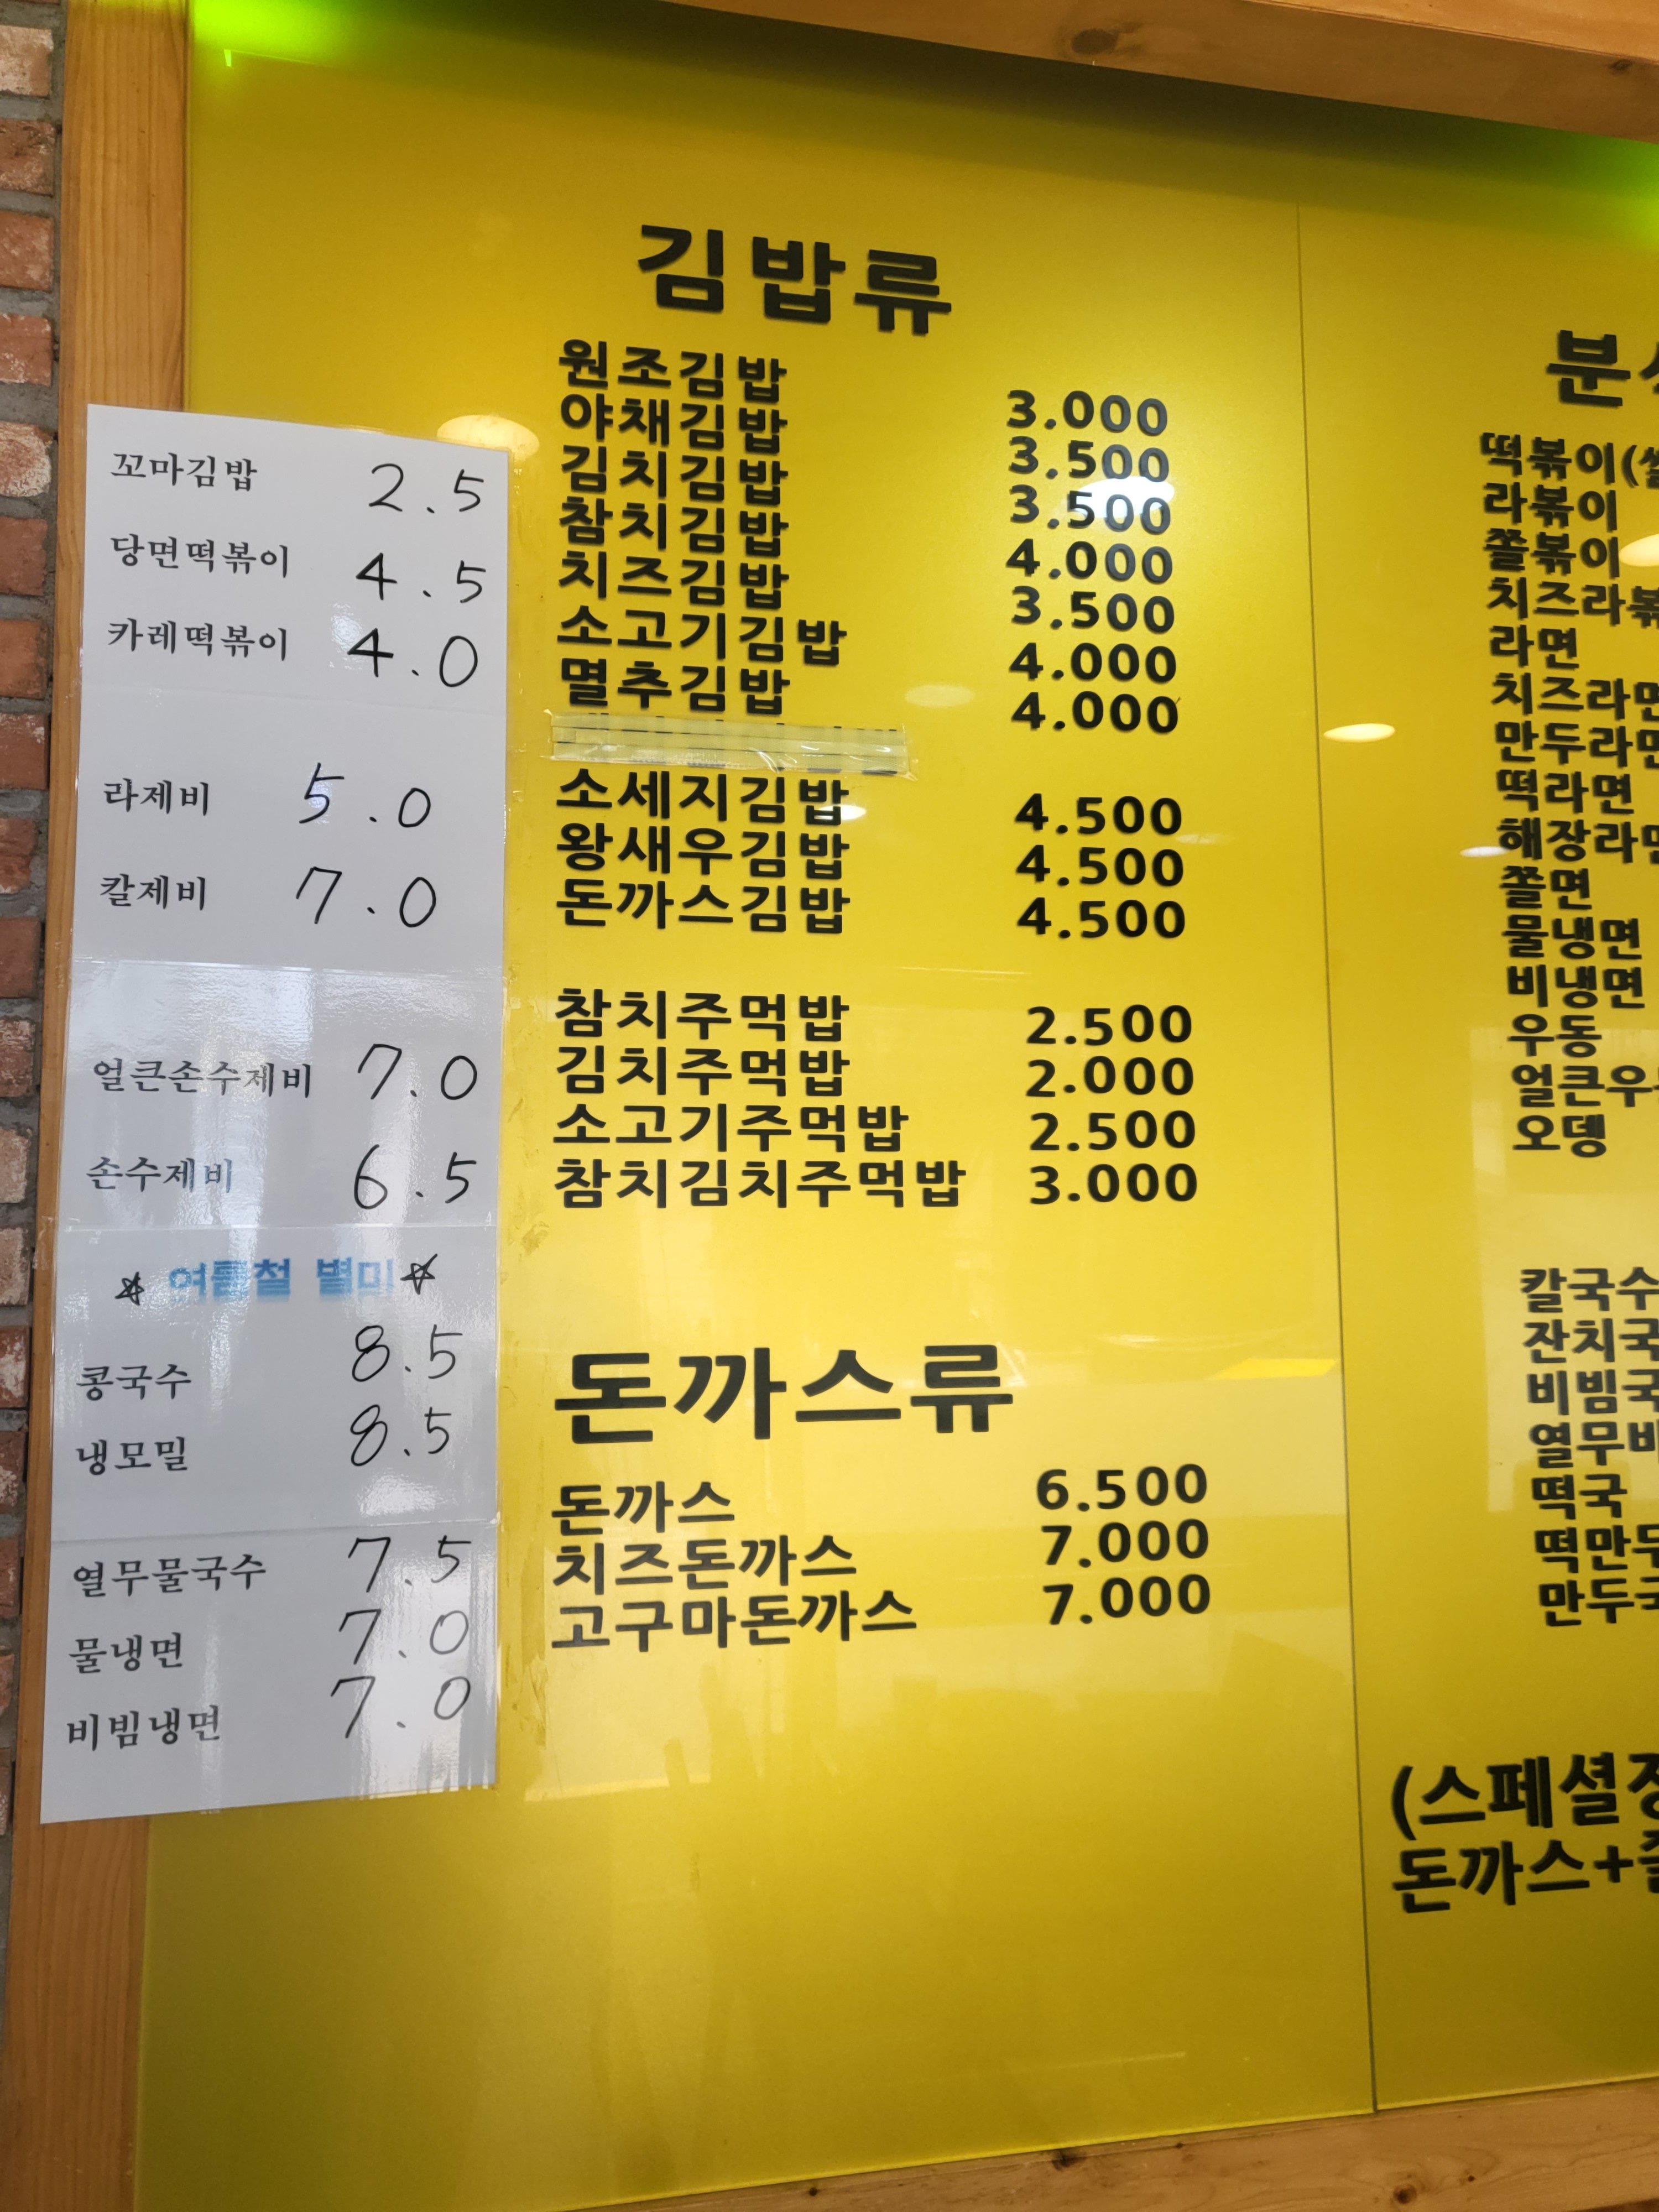 꼬마김밥 2.5
당면떡볶이 4.5
카레떡볶이 4.0
라제비 5.0
칼제비 7.0
얼큰손수제비 7.0
손수제비 6.5
여름철 별미
콩국수 8.5
냉모밀 8.5
열무물국수 7.5
물냉면 7.0
비빔냉면 7.0
김밥류
원조김밥 3.000
야채김밥 3.500
김치김밥 3.500
참치김밥 4.000
치즈김밥 3.500
소고기김밥 4.000
멸추김밥 4.000
소세지김밥 4.500
왕새우김밥 4.500
돈까스김밥 4.500
참치주먹밥 2.500
김치주먹밥 2.000
소고기주먹밥 2.500
참치김치주먹밥 3.000
돈까스류
돈까스 6.500
치즈돈까스 7.000
고구마돈까스 7.000
분
떡볶이(
라볶이
쫄볶이
치즈라볶
라면
치즈라면
만두라면
떡라면
해장라면
쫄면
물냉면
비냉면
우동
얼큰우
오뎅
칼국수
잔치국
비빔국
열무비
떡국
떡만두
만두국
(스페셜정
돈까스+